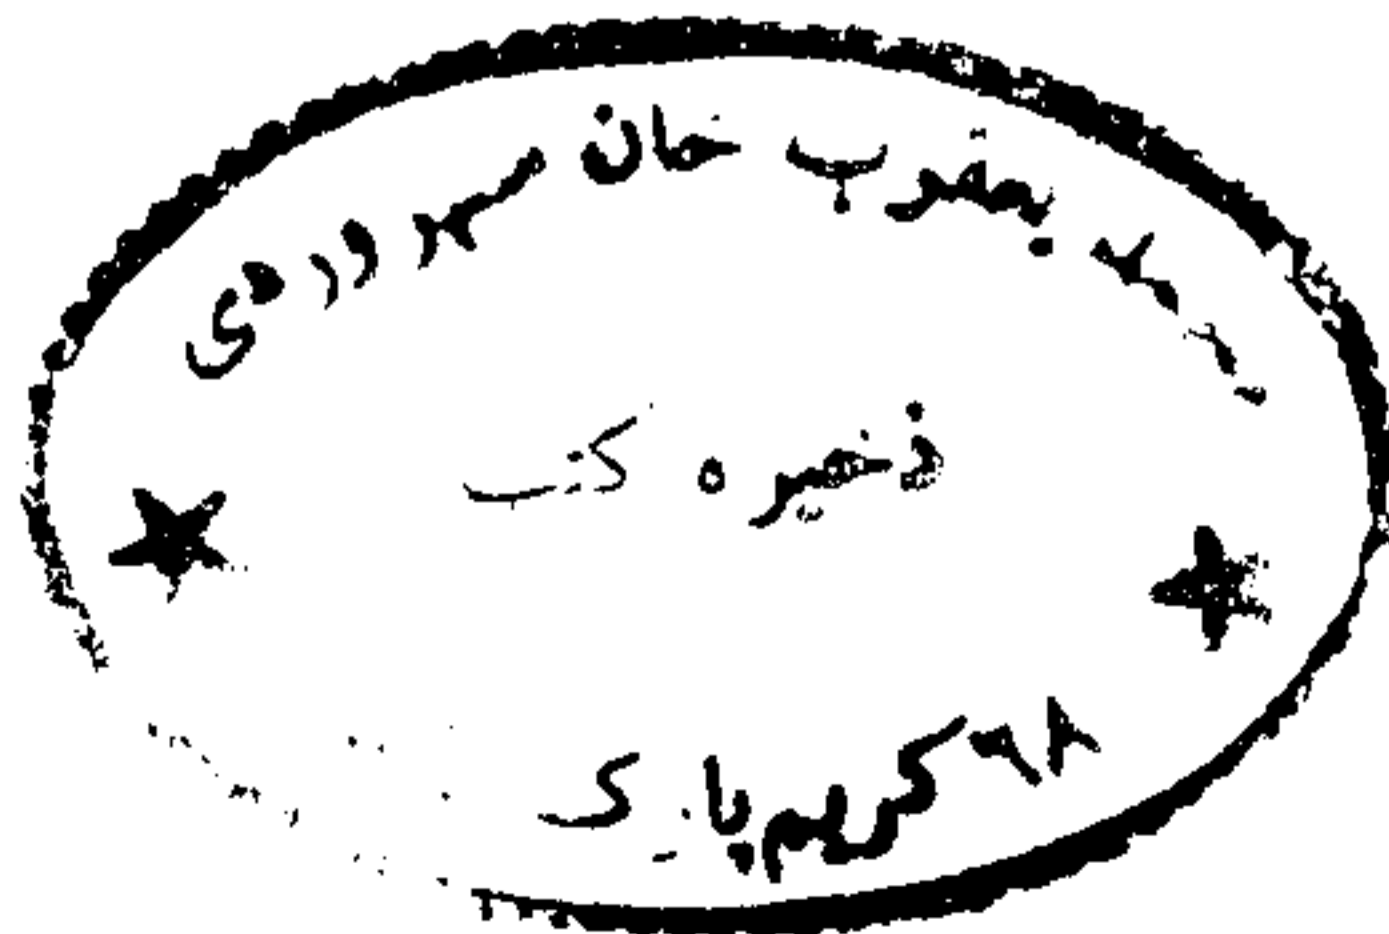 یعقوب خان سهروردی
ذخیره کتب
۹۸ کریم پارک